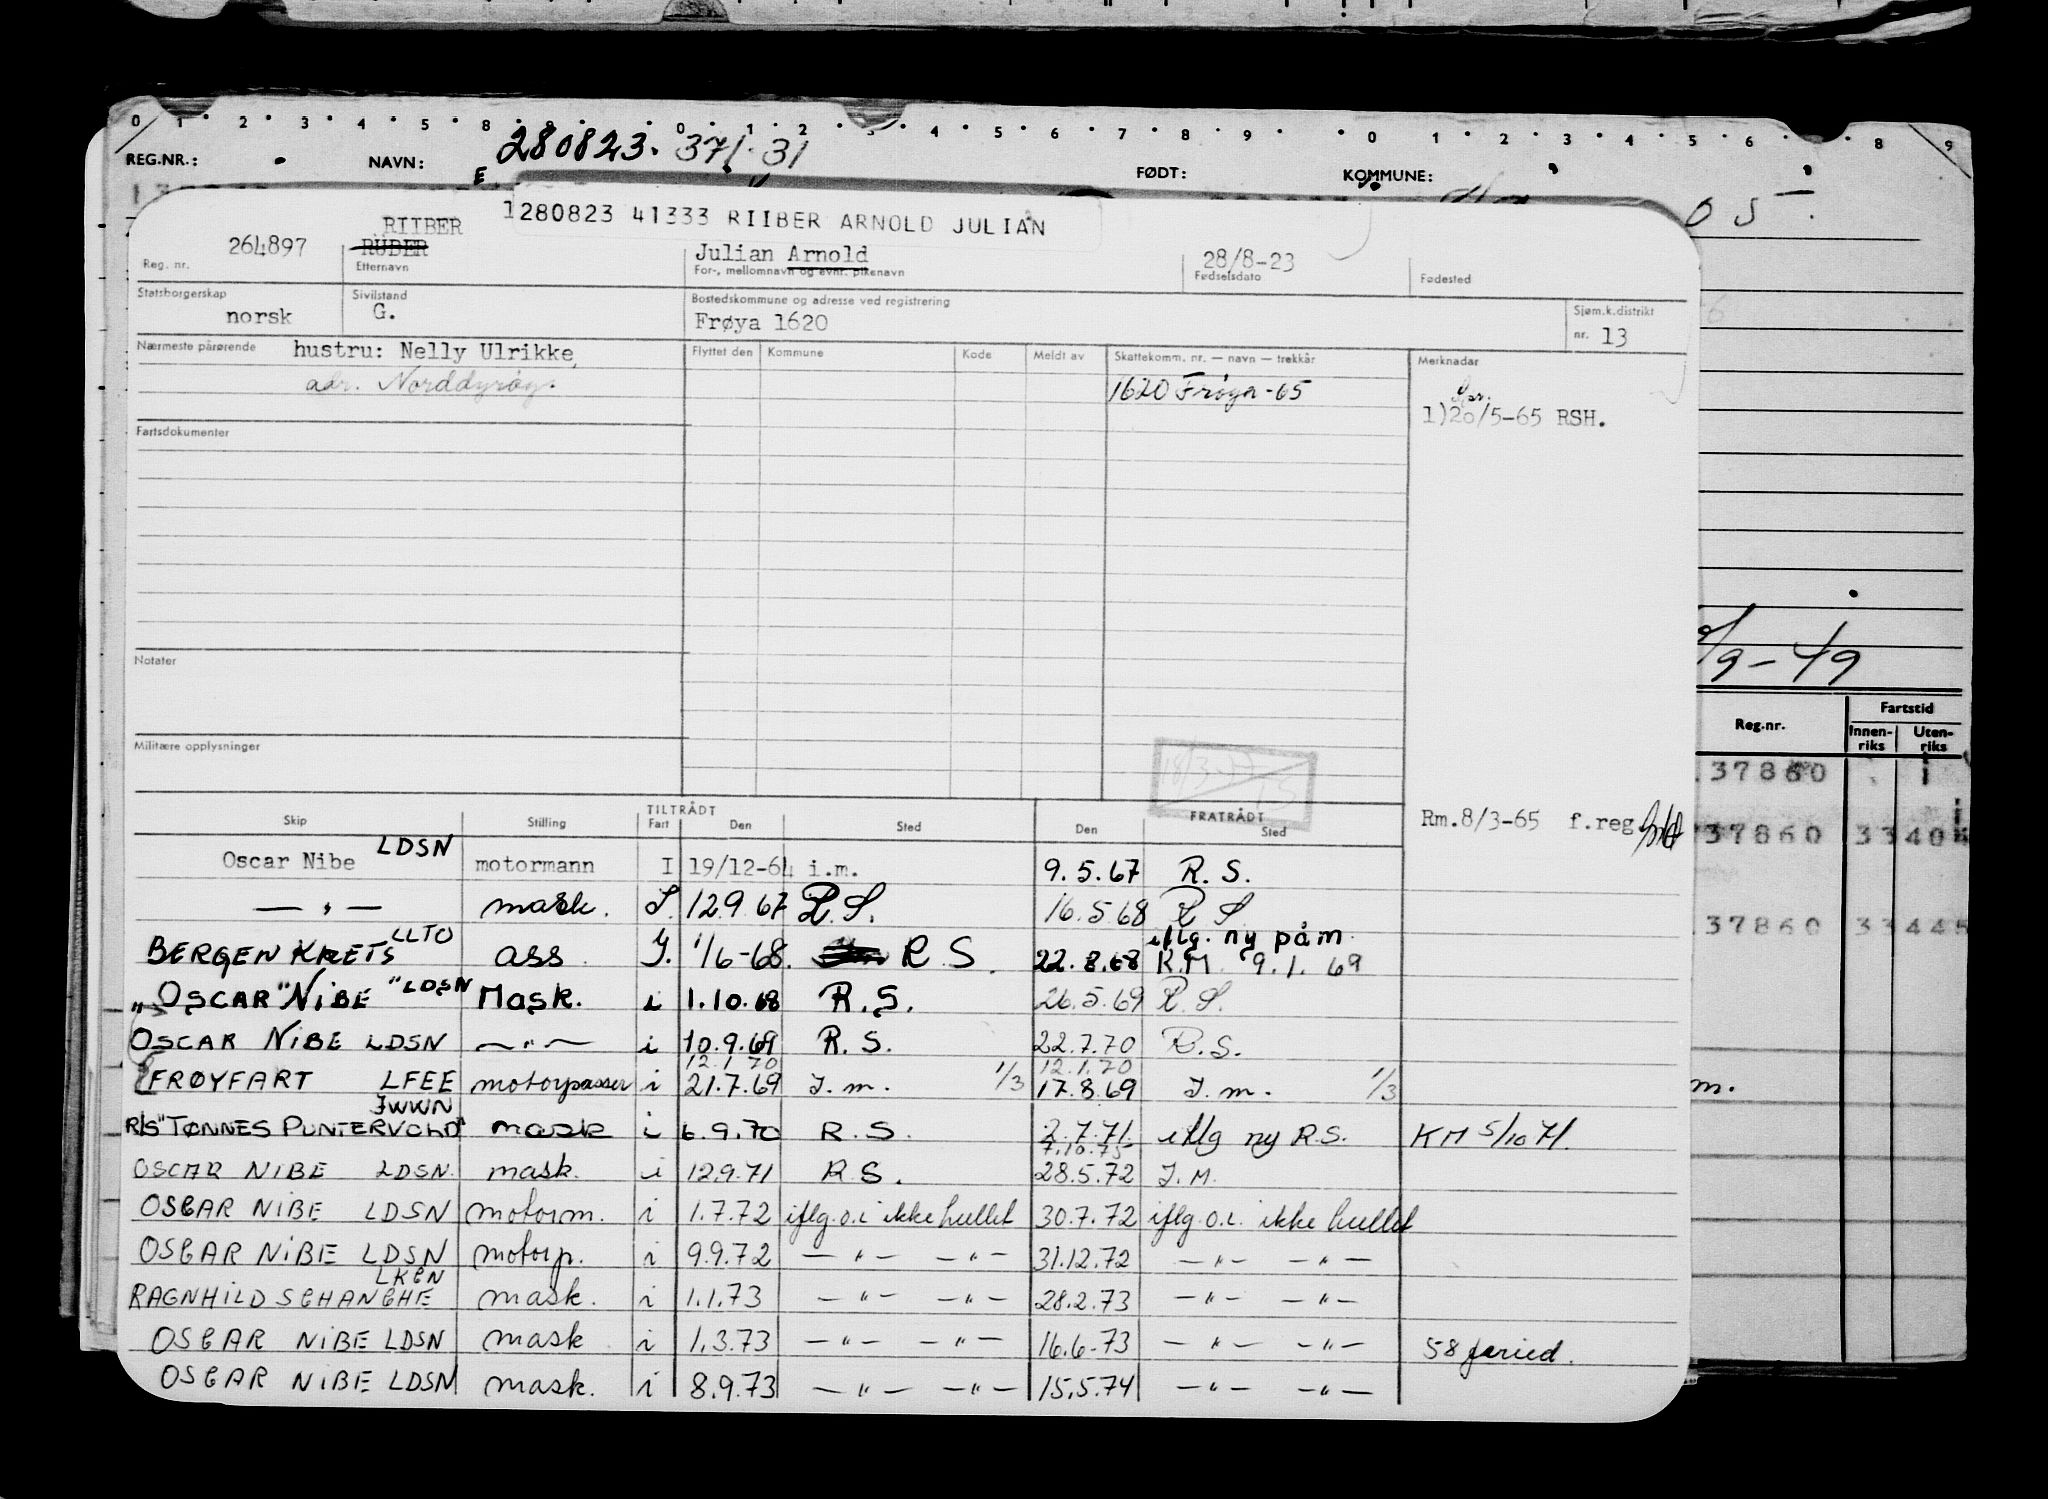 0 1 2 3 4 5 8 0 1 2 3 4 5 6 7 8 9 0 1 2 3 4 5 6 8 9
REG.NR.: NAVN: 280823. 371.31 FØDT: KOMMUNE:
05
1280823 41333 RIIBER ARNOLD JULIAN
RIIBER
264897 RUBER Julian Arnold 28/8-23
Reg. nr. Etternavn For-, mellomnavn og evnt. pikenavn Fødselsdato Fødested
Statsborgerskap Sivilstand Bostedskommune og adresse ved registrering Sjøm.k.distrikt
norsk G. Frøya 1620 nr. 13
Nærmeste pårørende hustru: Nelly Ulrikke, Flyttet den Kommune Kode Meldt av Skattekomm. nr. — navn — trekkår Merknader
adr. Norddyrøy. 1620 Frøya-65
1) 20/5-65 RSH.
Fartsdokumenter
Notater
/9-49
Reg.nr. Fartstid
Innen-riks Uten-riks
Militære opplysninger
37860 i
18/3-
TILTRÅDT FRATRÅDT
Skip Stilling Fart Den Sted Den Sted
Rm.8/3-65 f.reg
37860 33405
Oscar Nibe LDSN motormann I 19/12-64 i.m. 9.5.67 R.S.
— " — mask. I. 12.9.67 R.S. 16.5.68 R S
37860 33445
BERGEN KRETS LLTO ass. I. 1/6-68. R S. 22.8.68 iflg. ny påm. R.M. 9.1.69
"OSCAR "NIBE "LDSN Mask. i 1.10.68 R.S. 26.5.69 R.S.
OSCAR NIBE LDSN — " — i 10.9.69 R.S. 22.7.70 R.S.
12.1.70 12.1.70
FRØYFART LFEE motorpasser i 21.7.69 I.m. 1/3 17.8.69 I.m. 1/3
m.
JWWN
R/S "TØNNES PUNTERVOLD" mask i 6.9.70 R.S. 2.7.71. iflg ny R.S. KM 5/10 71.
7.10.75
OSCAR NIBE LDSN. mask. i 12.9.71 R.S. 28.5.72 I.M.
OSCAR NIBE LDSN motorm. i 1.7.72 iflg.o.l. ikke hullet 30.7.72 iflg.o.l. ikke hullet
OSCAR NIBE LDSN motorp. i 9.9.72 — " — — " — 31.12.72 — " — — " —
LKEN
RAGNHILD SCHANCHE mask. i 1.1.73 — " — — " — 28.2.73 — " — — " —
OSCAR NIBE LDSN mask i 1.3.73 — " — — " — 16.6-73 — " — — " — 58 feried.
OSCAR NIBE LDSN mask. i 8.9.73 — " — — " — 15.5.74 — " — — " —